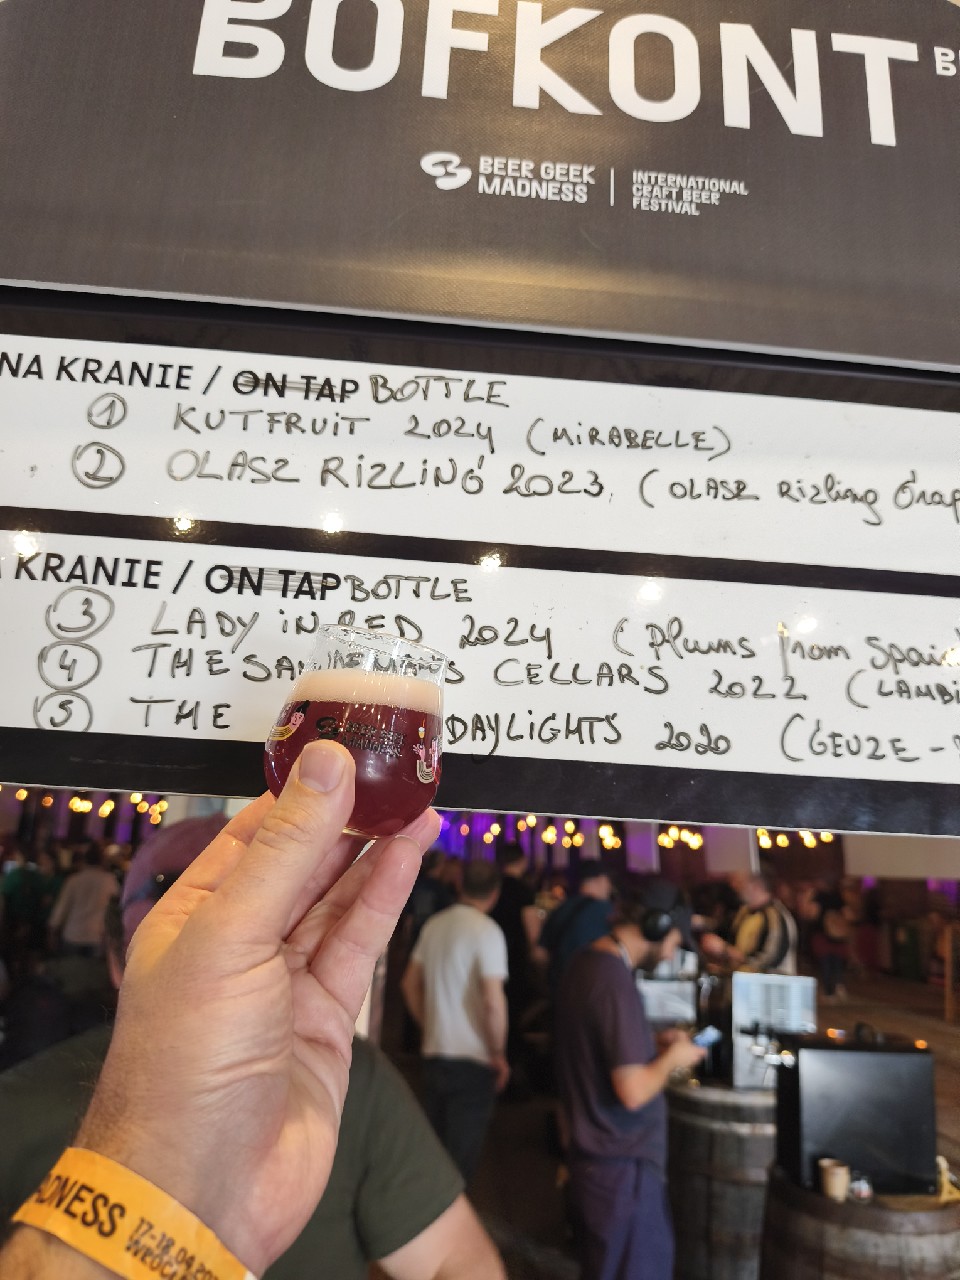 BOFKONT
BEER GEEK
MADNESS
INTERNATIONAL
CRAFT BEER
FESTIVAL
NA KRANIE / ON TAP BOTTLE
1 KUTFRUiT 2024 (MiRABELLE)
2 OLASZ RiZLiNG 2023. (OLASZ Rizling
KRANIE / ON TAP BOTTLE
3 LADY iN RED 2024 (Plums from Spain
4 THE CELLARS 2022 (LAMBi
5 THE DAYLiGHTS 2020 (GEUZE -
BEER GEEK
MADNESS
17-18.04.20